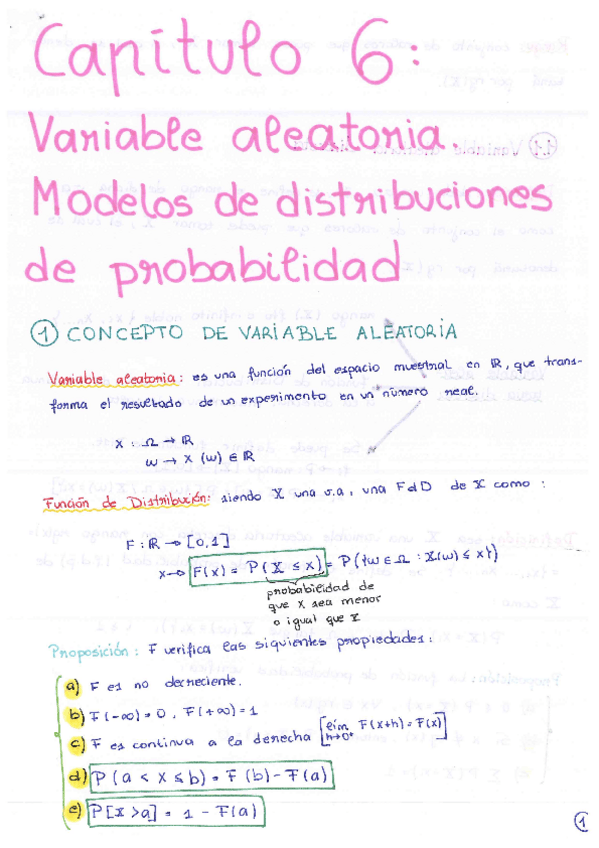 Capítulo 6:
Variable aleatoria.
Modelos de distribuciones
de probabilidad
① CONCEPTO DE VARIABLE ALEATORIA
Variable aleatoria: es una función del espacio muestral en ℝ, que trans-
forma el resultado de un experimento en un número real.
X : Ω → ℝ
ω → X (ω) ∈ ℝ
Función de Distribución: siendo X una v.a, una FdD de X como :
F: ℝ → [0,1]
x → F(x) = P(X ≤ x) = P({ω ∈ Ω : X(ω) ≤ x})
probabilidad de
que X sea menor
o igual que X
Proposición : F verifica las siguientes propiedades :
a) F es no decreciente.
b) F(-∞) = 0 , F(+∞) = 1
c) F es continua a la derecha [lím h→0⁺ F(x+h) = F(x)]
d) P(a < X ≤ b) = F(b) - F(a)
e) P[X > a] = 1 - F(a)
1